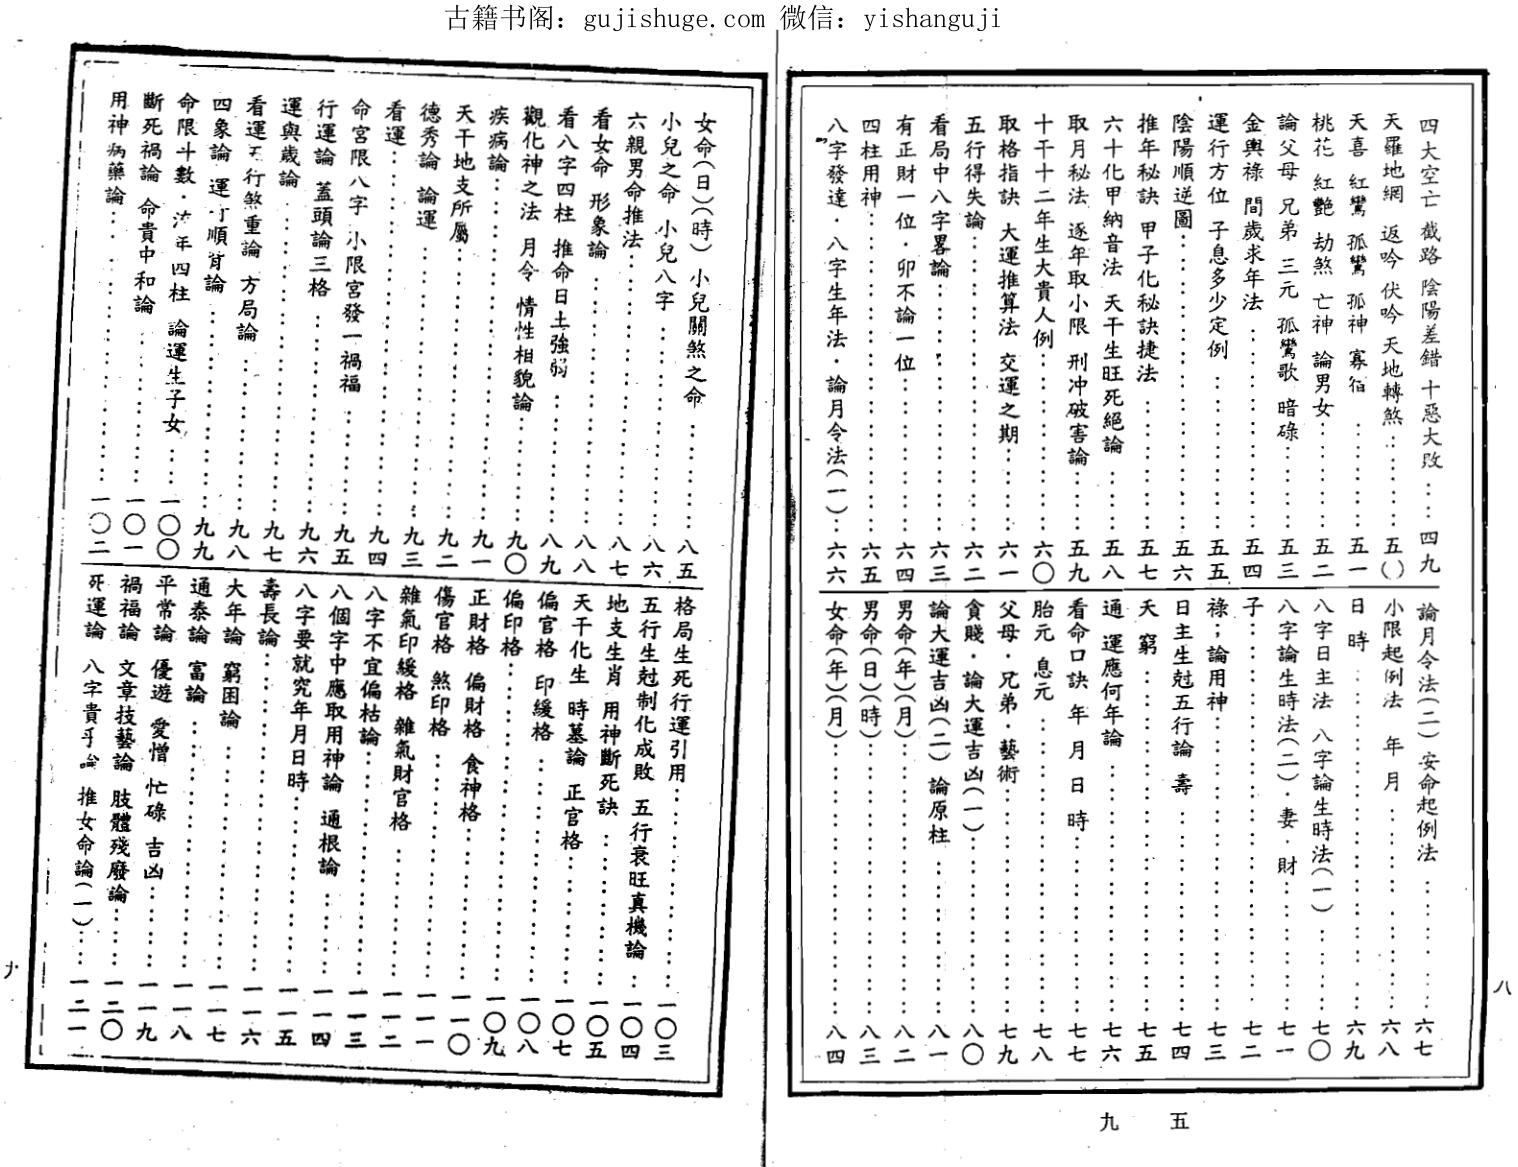 古籍书阁：gujishuge.com 微信：yishanguji
四大空亡 截路 陰陽差錯 十惡大敗……四九
天羅地網 返吟 伏吟 天地轉煞……五〇
天喜 紅鸞 孤鸞 孤神 寡宿……五一
桃花 紅艷 劫煞 亡神 論男女……五二
論父母 兄弟 三元 孤鸞歌 暗碌……五三
金輿祿 間歲求年法……五四
運行方位 子息多少定例……五五
陰陽順逆圖……五六
推年秘訣 甲子化秘訣捷法……五七
六十化甲納音法 天干生旺死絕論……五八
取月秘法 逐年取小限 刑冲破害論……五九
十干十二年生大貴人例……六〇
取格指訣 大運推算法 交運之期……六一
五行得失論……六二
看局中八字畧論……六三
有正財一位・卯不論一位……六四
四柱用神……六五
八字發達・八字生年法・論月令法(一)……六六
論月令法(二) 安命起例法……六七
小限起例法 年 月……六八
日 時……六九
八字日主法 八字論生時法(一)……七〇
八字論生時法(二)・妻・財……七一
子……七二
祿；論用神……七三
日主生尅五行論 壽……七四
天 窮……七五
通 運應何年論……七六
看命口訣 年 月 日 時……七七
胎元 息元……七八
父母・兄弟・藝術……七九
貪賤・論大運吉凶(一)……八〇
論大運吉凶(二) 論原柱……八一
男命(年)(月)……八二
男命(日)(時)……八三
女命(年)(月)……八四
八
九 五
女命(日)(時) 小兒關煞之命……八五
小兒之命 小兒八字……八六
六親男命推法……八七
看女命 形象論……八八
看八字四柱 推命日主強弱……八九
觀化神之法 月令 情性相貌論……九〇
疾病論……九一
天干地支所屬……九二
德秀論 論運……九三
看運……九四
命宮限八字 小限宮發一禍福……九五
行運論 蓋頭論三格……九六
運與歲論……九七
看運五行煞重論 方局論……九八
四象論 運行順背論……九九
命限斗數・流年四柱 論運生子女……一〇〇
斷死禍論 命貴中和論……一〇一
用神病藥論……一〇二
格局生死行運引用……一〇三
五行生尅制化成敗 五行衰旺真機論……一〇四
地支生肖 用神斷死訣……一〇五
天干化生 時墓論 正官格……一〇七
偏官格 印綬格……一〇八
偏印格……一〇九
正財格 偏財格 食神格……一一〇
傷官格 煞印格……一一一
雜氣印綬格 雜氣財官格……一一二
八字不宜偏枯論……一一三
八個字中應取用神論 通根論……一一四
八字要就究年月日時……一一五
壽長論……一一六
大年論 窮困論……一一七
通泰論 富論……一一八
平常論 優遊 愛憎 忙碌 吉凶……一一九
禍福論 文章技藝論 肢體殘廢論……一二〇
死運論 八字貴乎論 推女命論(一)……一二一
九